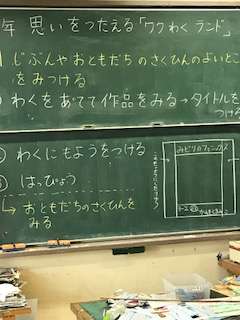 年 思いをつたえる「ワクわくランド」
じぶんやおともだちのさくひんのよいとこ
をみつける
わくをあてて作品をみる→タイトルを
つける
わくにもようをつける
③ はっぴょう
↳ おともだちのさくひんを
みる
みどりのフェニックス